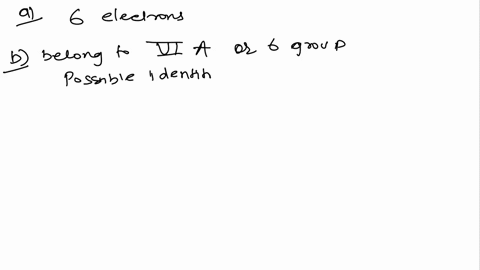 a) 6 electrons
b) belong to VI A or 6 group
Possible identih